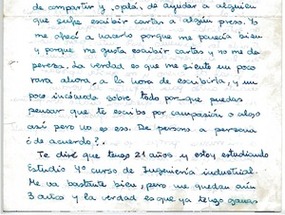 de compartir y, ojalá, de ayudar a alguien
que quiere escribir cartas a algún preso. Yo
me ofrecí a hacerlo porque me parecía bien
y porque me gusta escribir cartas y no me da
pereza. La verdad es que me siento un poco
rara ahora, a la hora de escribirla, y un
poco incómoda sobre todo porque puedas
pensar que te escribo por compasión o algo
así pero no es eso. De persona a persona
¿de acuerdo?.
Te diré que tengo 21 años y estoy estudiando
Estudio 4º curso de Ingeniería industrial.
Me va bastante bien, pero me quedan aún
3 años y la verdad es que ya tengo ganas